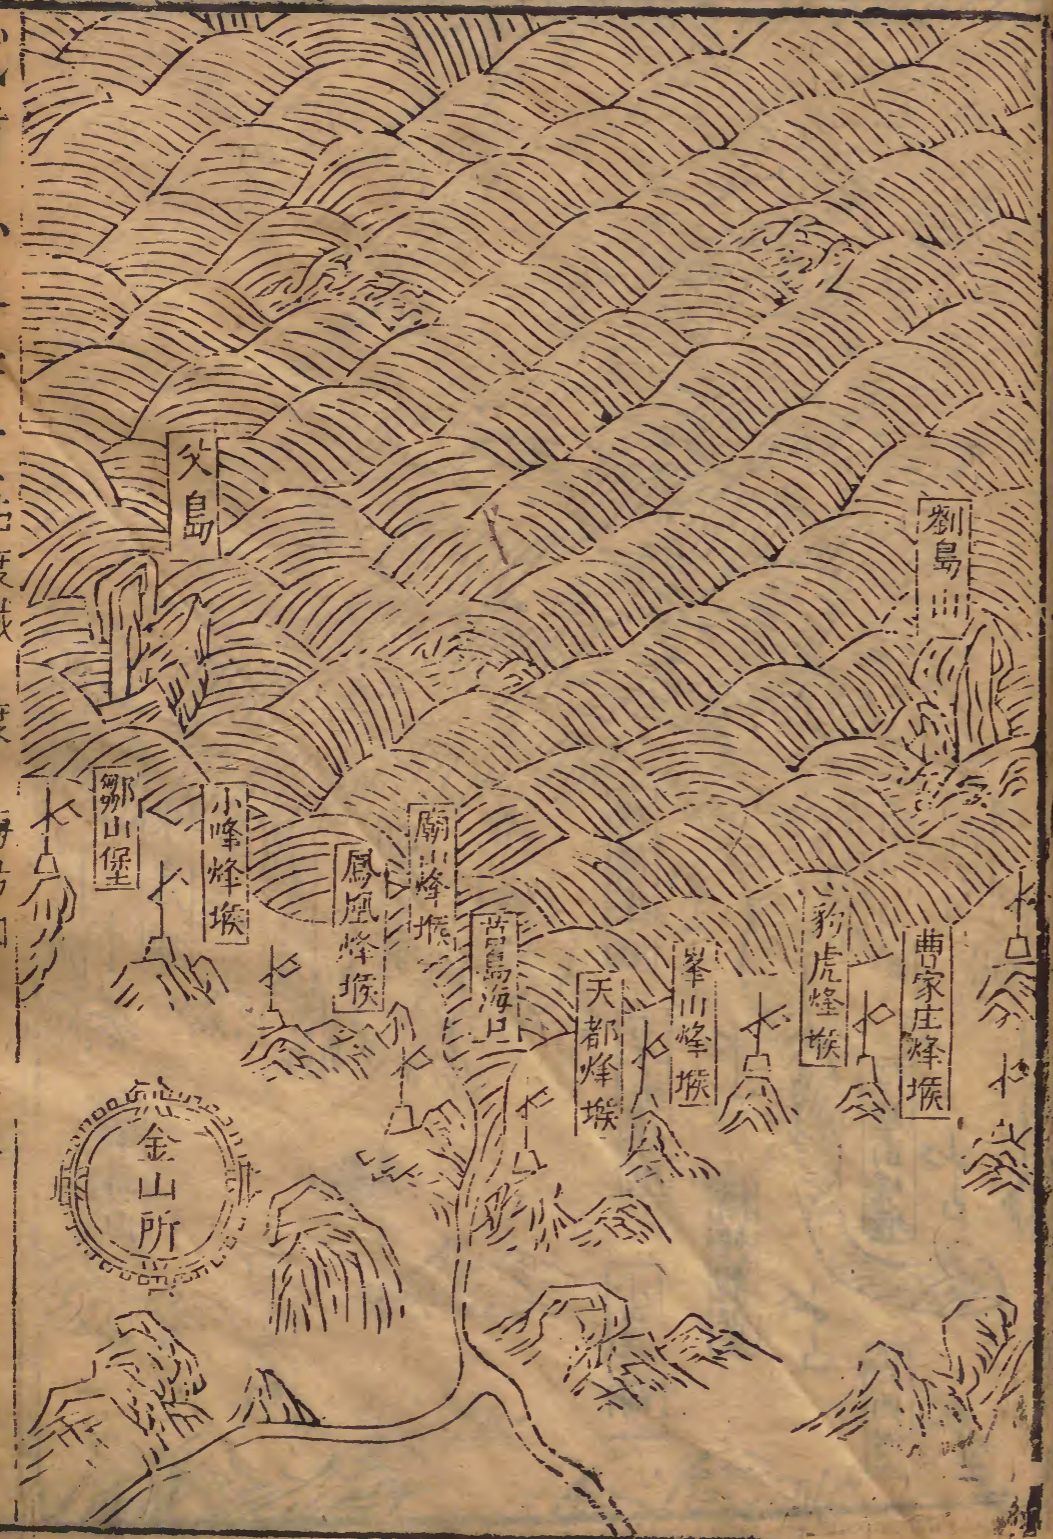 劉島山
曹家庄烽堠
豹虎烽堠
峯山烽堠
天都烽堠
嵩島海口
廟山烽堠
鳳凰烽堠
小峰烽堠
鄒山堡
島
金山所